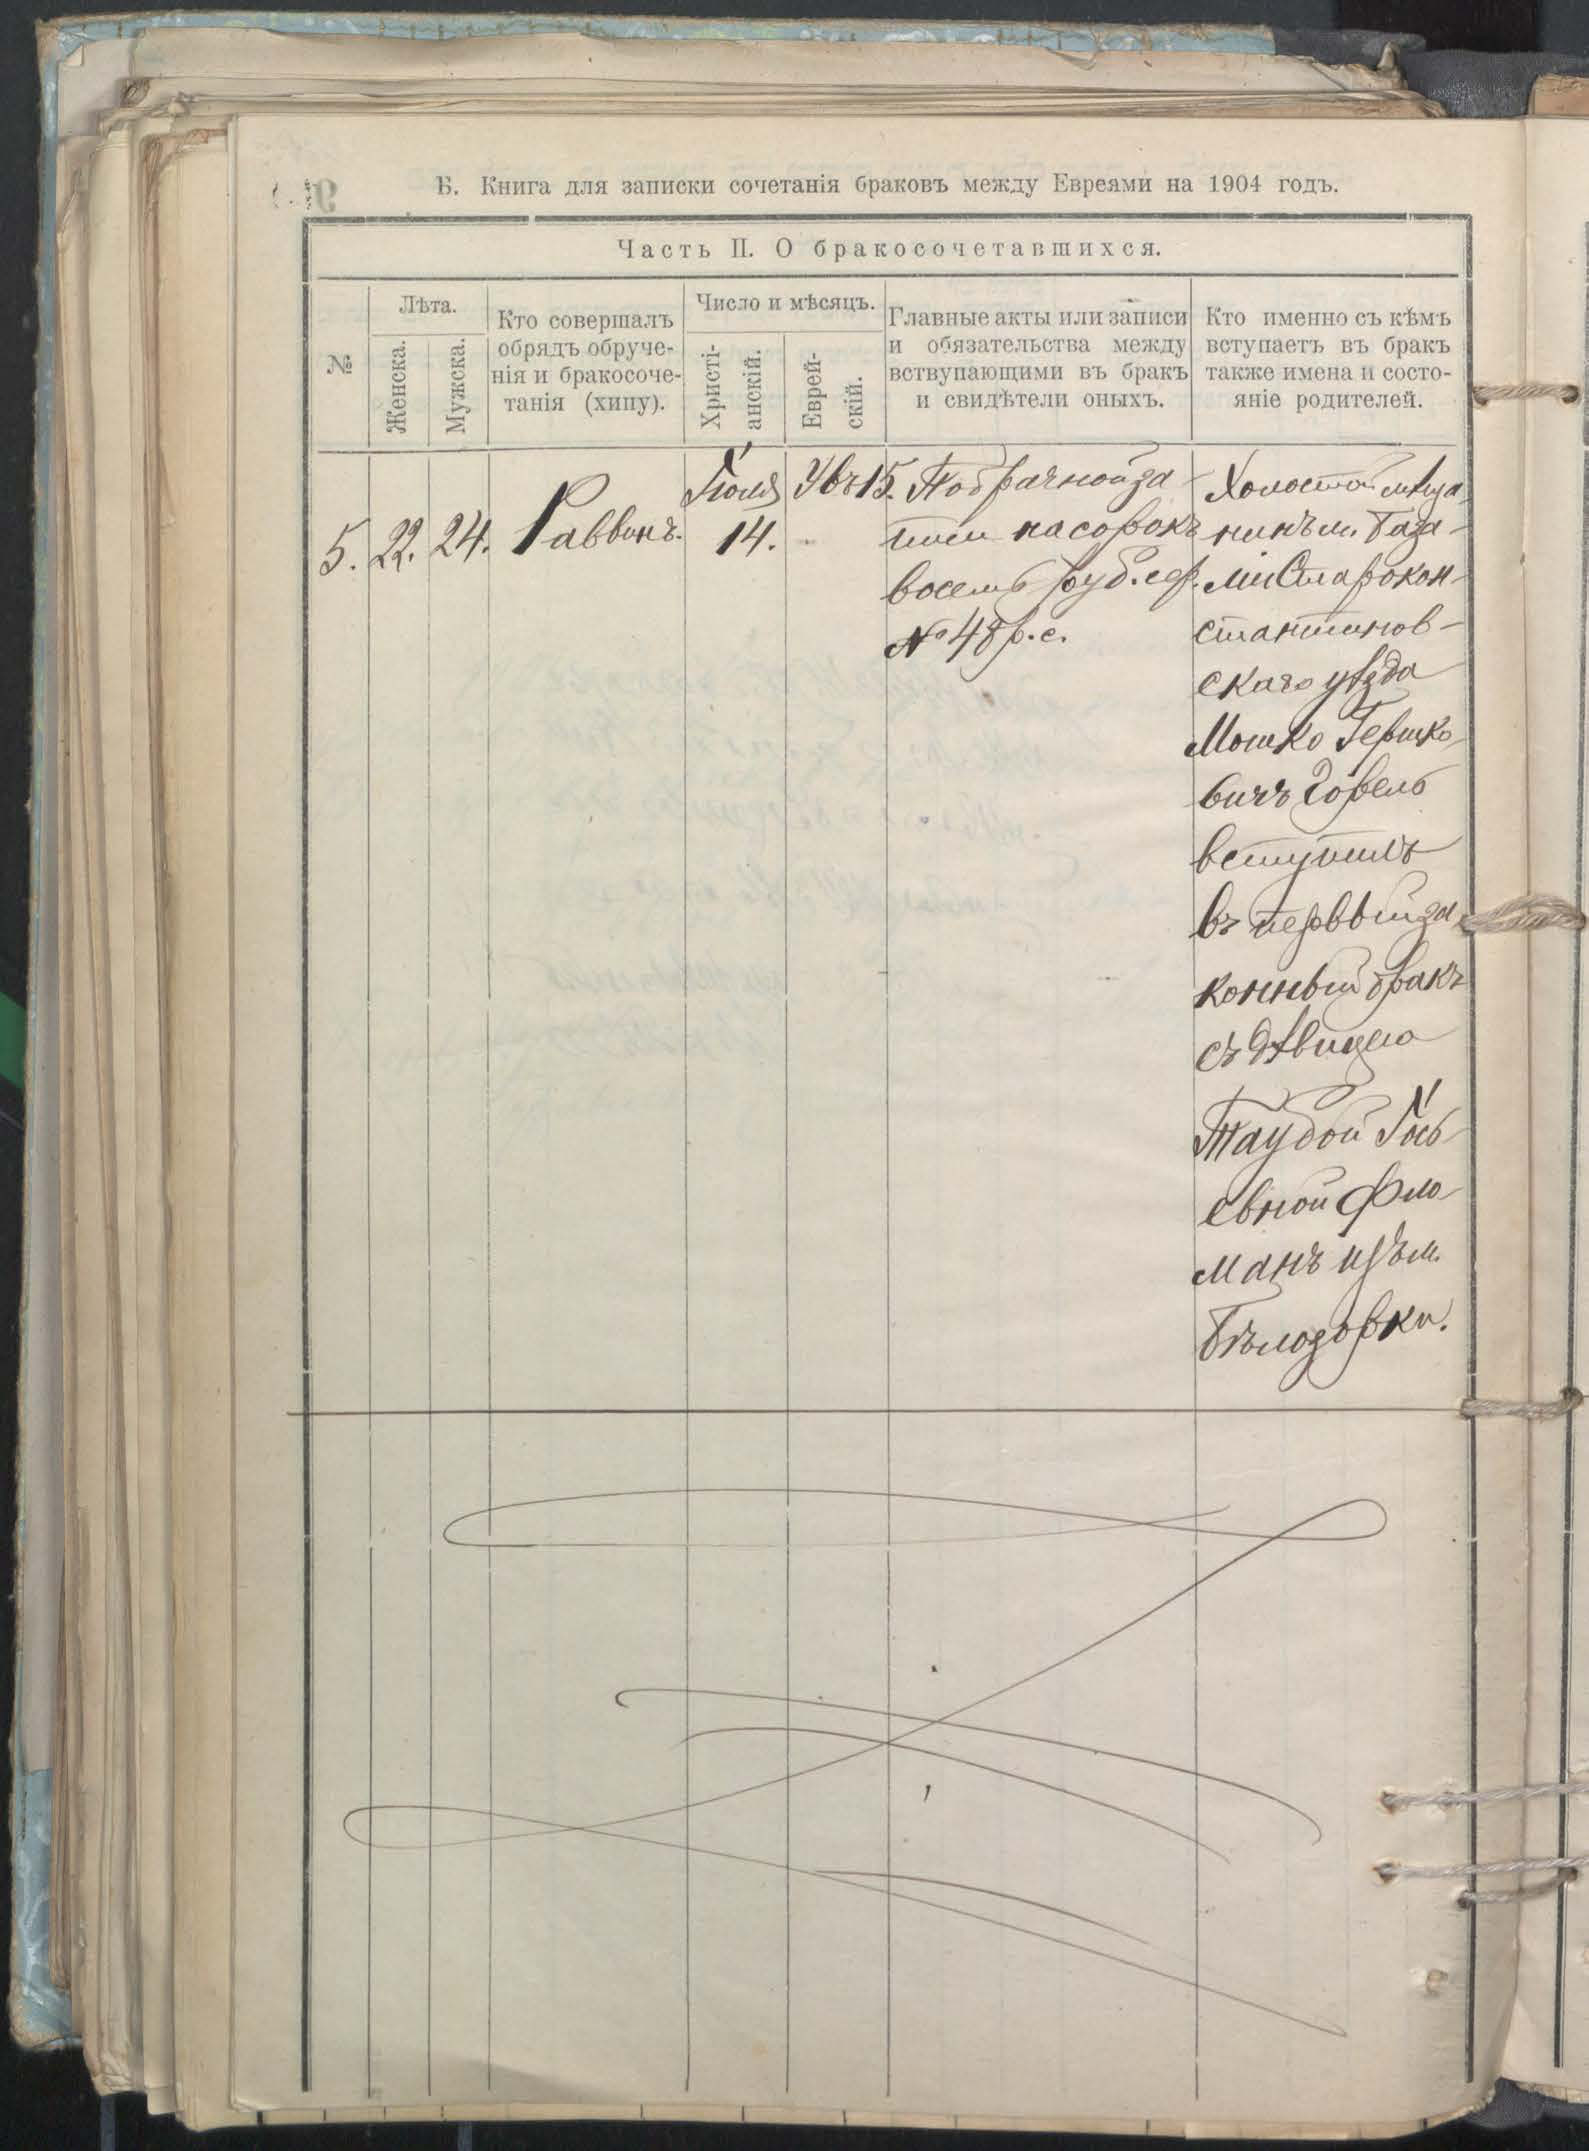 Б. Книга для записки сочетанія браковъ между Евреями на 1904 годъ.
Часть II. О бракосочетавшихся.
№
Лѣта.
Женска.
Мужска.
Кто совершалъ
обрядъ обруче-
нія и бракосоче-
танія (хипу).
Число и мѣсяцъ.
Христі-
анскій.
Еврей-
скій.
Главные акты или записи
и обязательства между
вствупающими въ бракъ
и свидѣтели оныхъ.
Кто именно съ кѣмъ
вступаетъ въ бракъ
также имена и состо-
яніе родителей.
5.
22.
24.
Раввинъ.
Іюля
14.
Увъ 15.
По брачной за-
писи на сорокъ
восемь руб. сер.
№ 48 р. с.
Холостой мѣща-
нинъ м. База-
ліи Старокон-
стантинов-
скаго уѣзда
Мошко Гершко-
вичъ
вступилъ
въ первый за-
конный бракъ
съ дѣвицею
Таубой Іось-
евной Фло-
манъ изъ м.
Бѣлозорки.